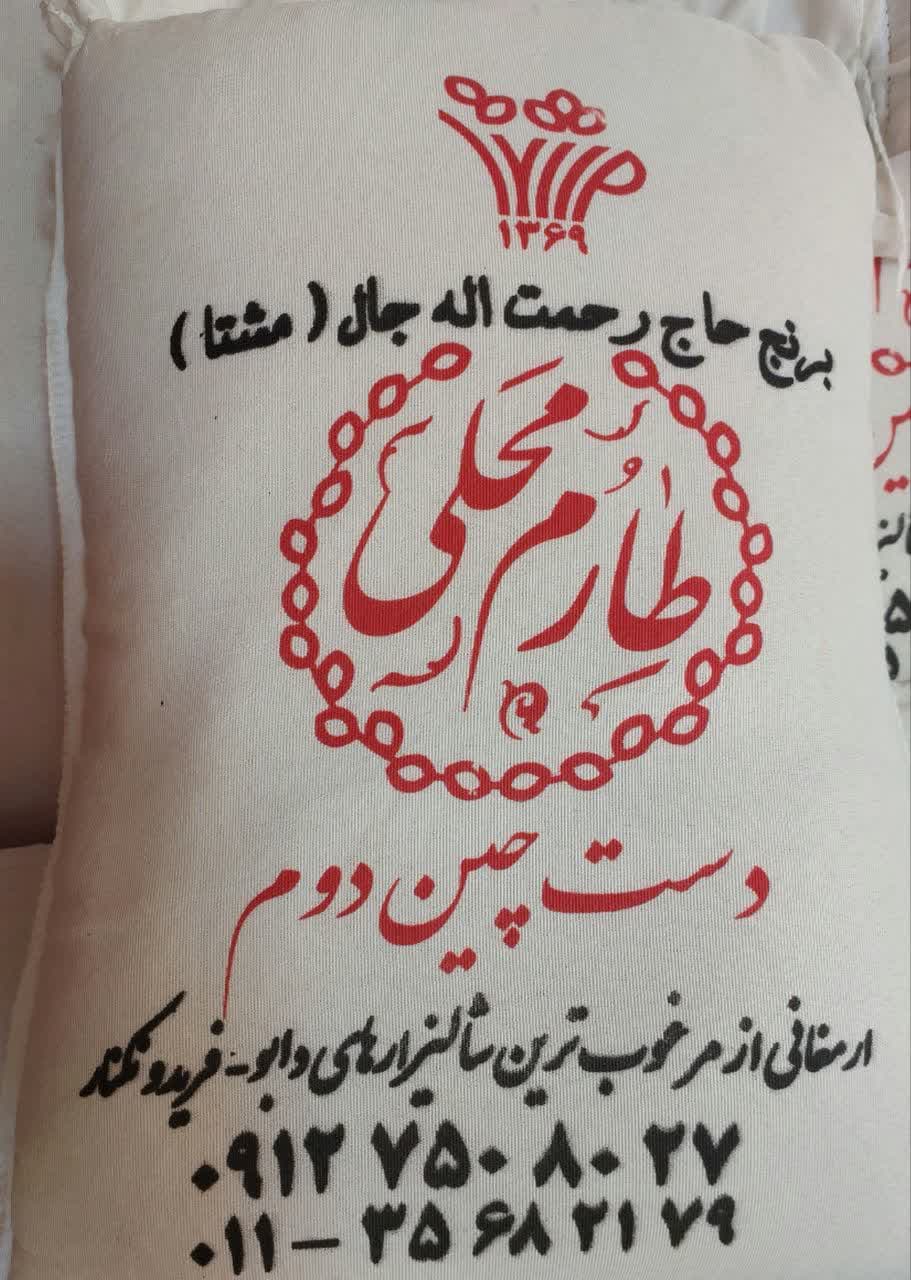 ۱۳۶۹
برنج حاج رحمت اله جال (مشتا)
طارم محلی
دست چین دوم
ارمغانی از مرغوب ترین شالیزارهای دابو - فریدونکنار
۰۹۱۲ ۷۵۰ ۸۰ ۲۷
۰۱۱ - ۳۵ ۶۸ ۲۱ ۷۹